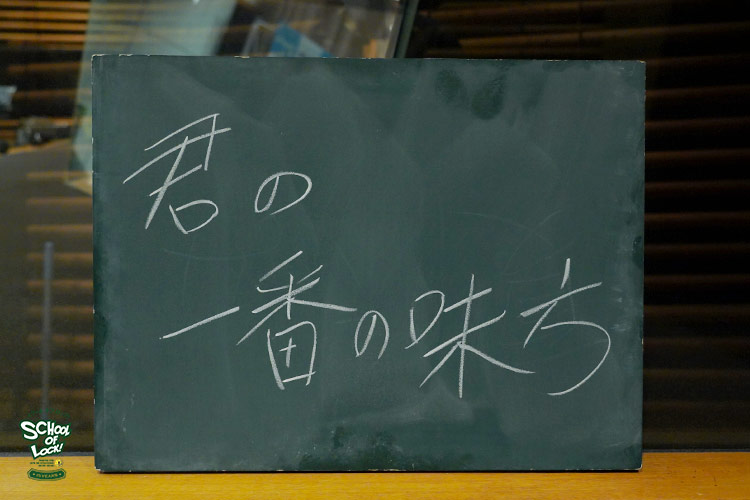 君の
一番の味方
SCHOOL
OF
LOCK!